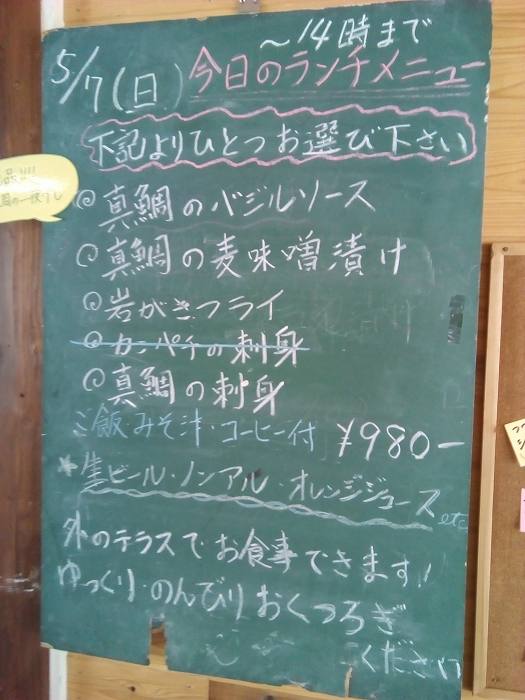 〜14時まで
5/7(日) 今日のランチメニュー
下記よりひとつお選び下さい
◎真鯛のバジルソース
◎真鯛の麦味噌漬け
◎岩がきフライ
◎カンパチの刺身
◎真鯛の刺身
ご飯・みそ汁・コーヒー付 ¥980-
*生ビール・ノンアル・オレンジジュース etc
外のテラスでお食事できます!
ゆっくり・のんびりおくつろぎ
ください
品!!!!